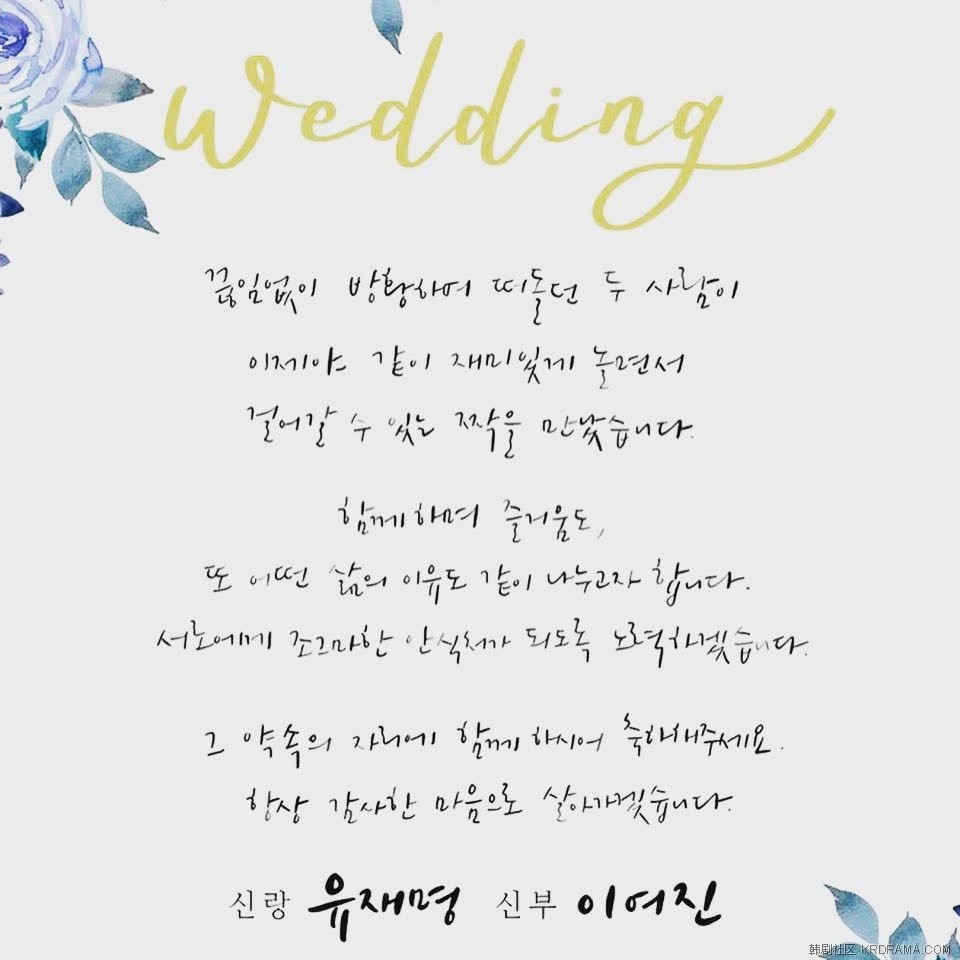 Wedding
끊임없이 방황하며 떠돌던 두 사람이
이제야 같이 재미있게 놀면서
걸어갈 수 있는 짝을 만났습니다.
함께하며 즐거움도,
또 어떤 삶의 이유도 같이 나누고자 합니다.
서로에게 조그마한 안식처가 되도록 노력하겠습니다.
그 약속의 자리에 함께 하시어 축하해주세요.
항상 감사한 마음으로 살아가겠습니다.
신랑 유재명 신부 이여진
韩剧社区 KRDRAMA.COM